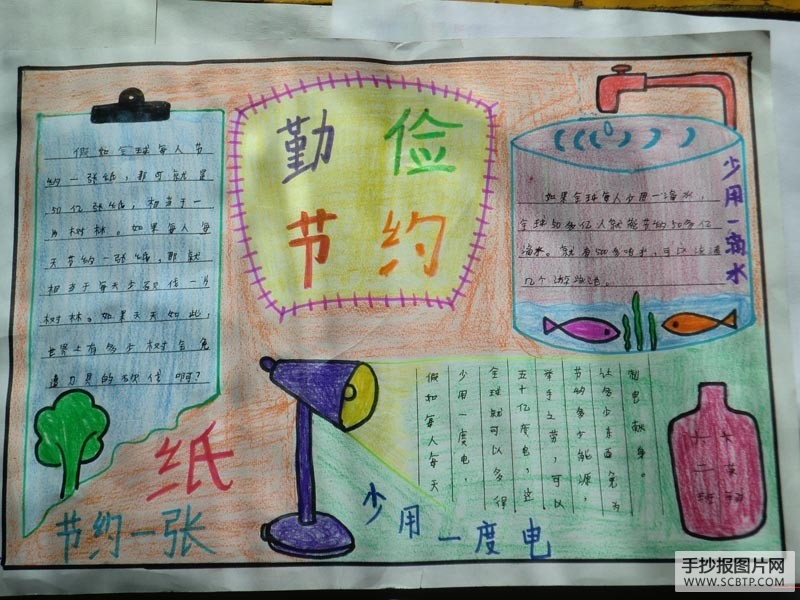 勤俭
节约
假如全球每人节
约一张纸，都可就是
50亿张纸，相当于一
片树林。如果每人每
天节约一张纸，那就
相当于每天少砍伐一片
树林。如果天天如此，
世界上有多少树会免
遭刀具的砍伐啊？
节约一张
纸
少用一滴水
如果全球每人少用一滴水，
全球50多亿人就能节约50多亿
滴水。就有500多吨水，可以
几个游泳池。
假如每人每天
少用一度电，
全球就可以多得
五十亿度电，这
举手之劳，可以
节约多少能源，
让多少东西免为
电献身。
少用一度电
六
二
班
手抄报图片网
WWW.SCBTP.COM